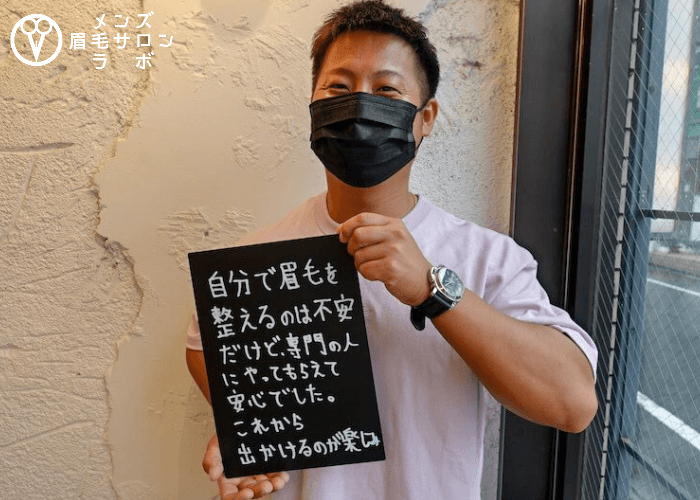 メンズ
眉毛サロン
ラボ
自分で眉毛を
整えるのは不安
だけど、専門の人
にやってもらえて
安心でした。
これから
出かけるのが楽しみ